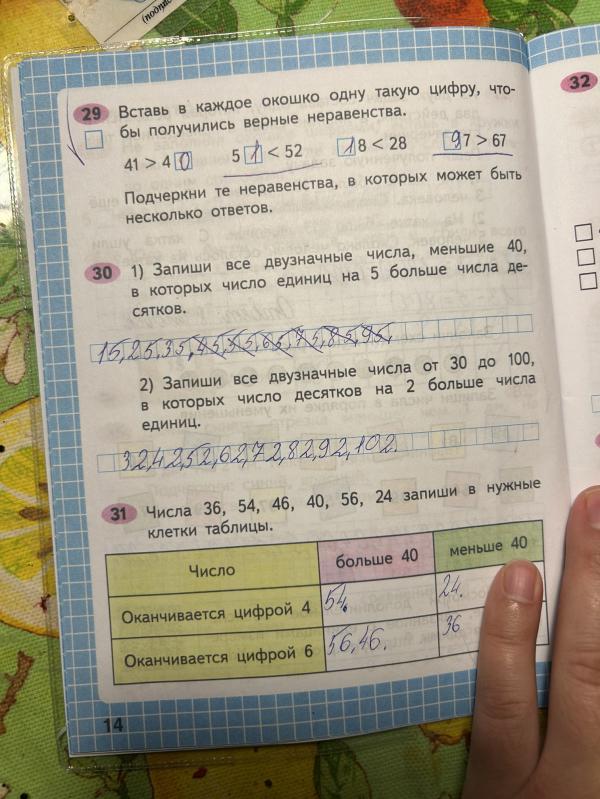 29 Вставь в каждое окошко одну такую цифру, что-
бы получились верные неравенства.
41 > 4 0 5 1 < 52 1 8 < 28 9 7 > 67
Подчеркни те неравенства, в которых может быть
несколько ответов.
30 1) Запиши все двузначные числа, меньшие 40,
в которых число единиц на 5 больше числа де-
сятков.
15, 25, 35, 45, 55, 65, 75, 85, 95.
2) Запиши все двузначные числа от 30 до 100,
в которых число десятков на 2 больше числа
единиц.
32, 42, 52, 62, 72, 82, 92, 102.
31 Числа 36, 54, 46, 40, 56, 24 запиши в нужные
клетки таблицы.
Число больше 40 меньше 40
Оканчивается цифрой 4 54. 24.
Оканчивается цифрой 6 56, 46. 36
14
32